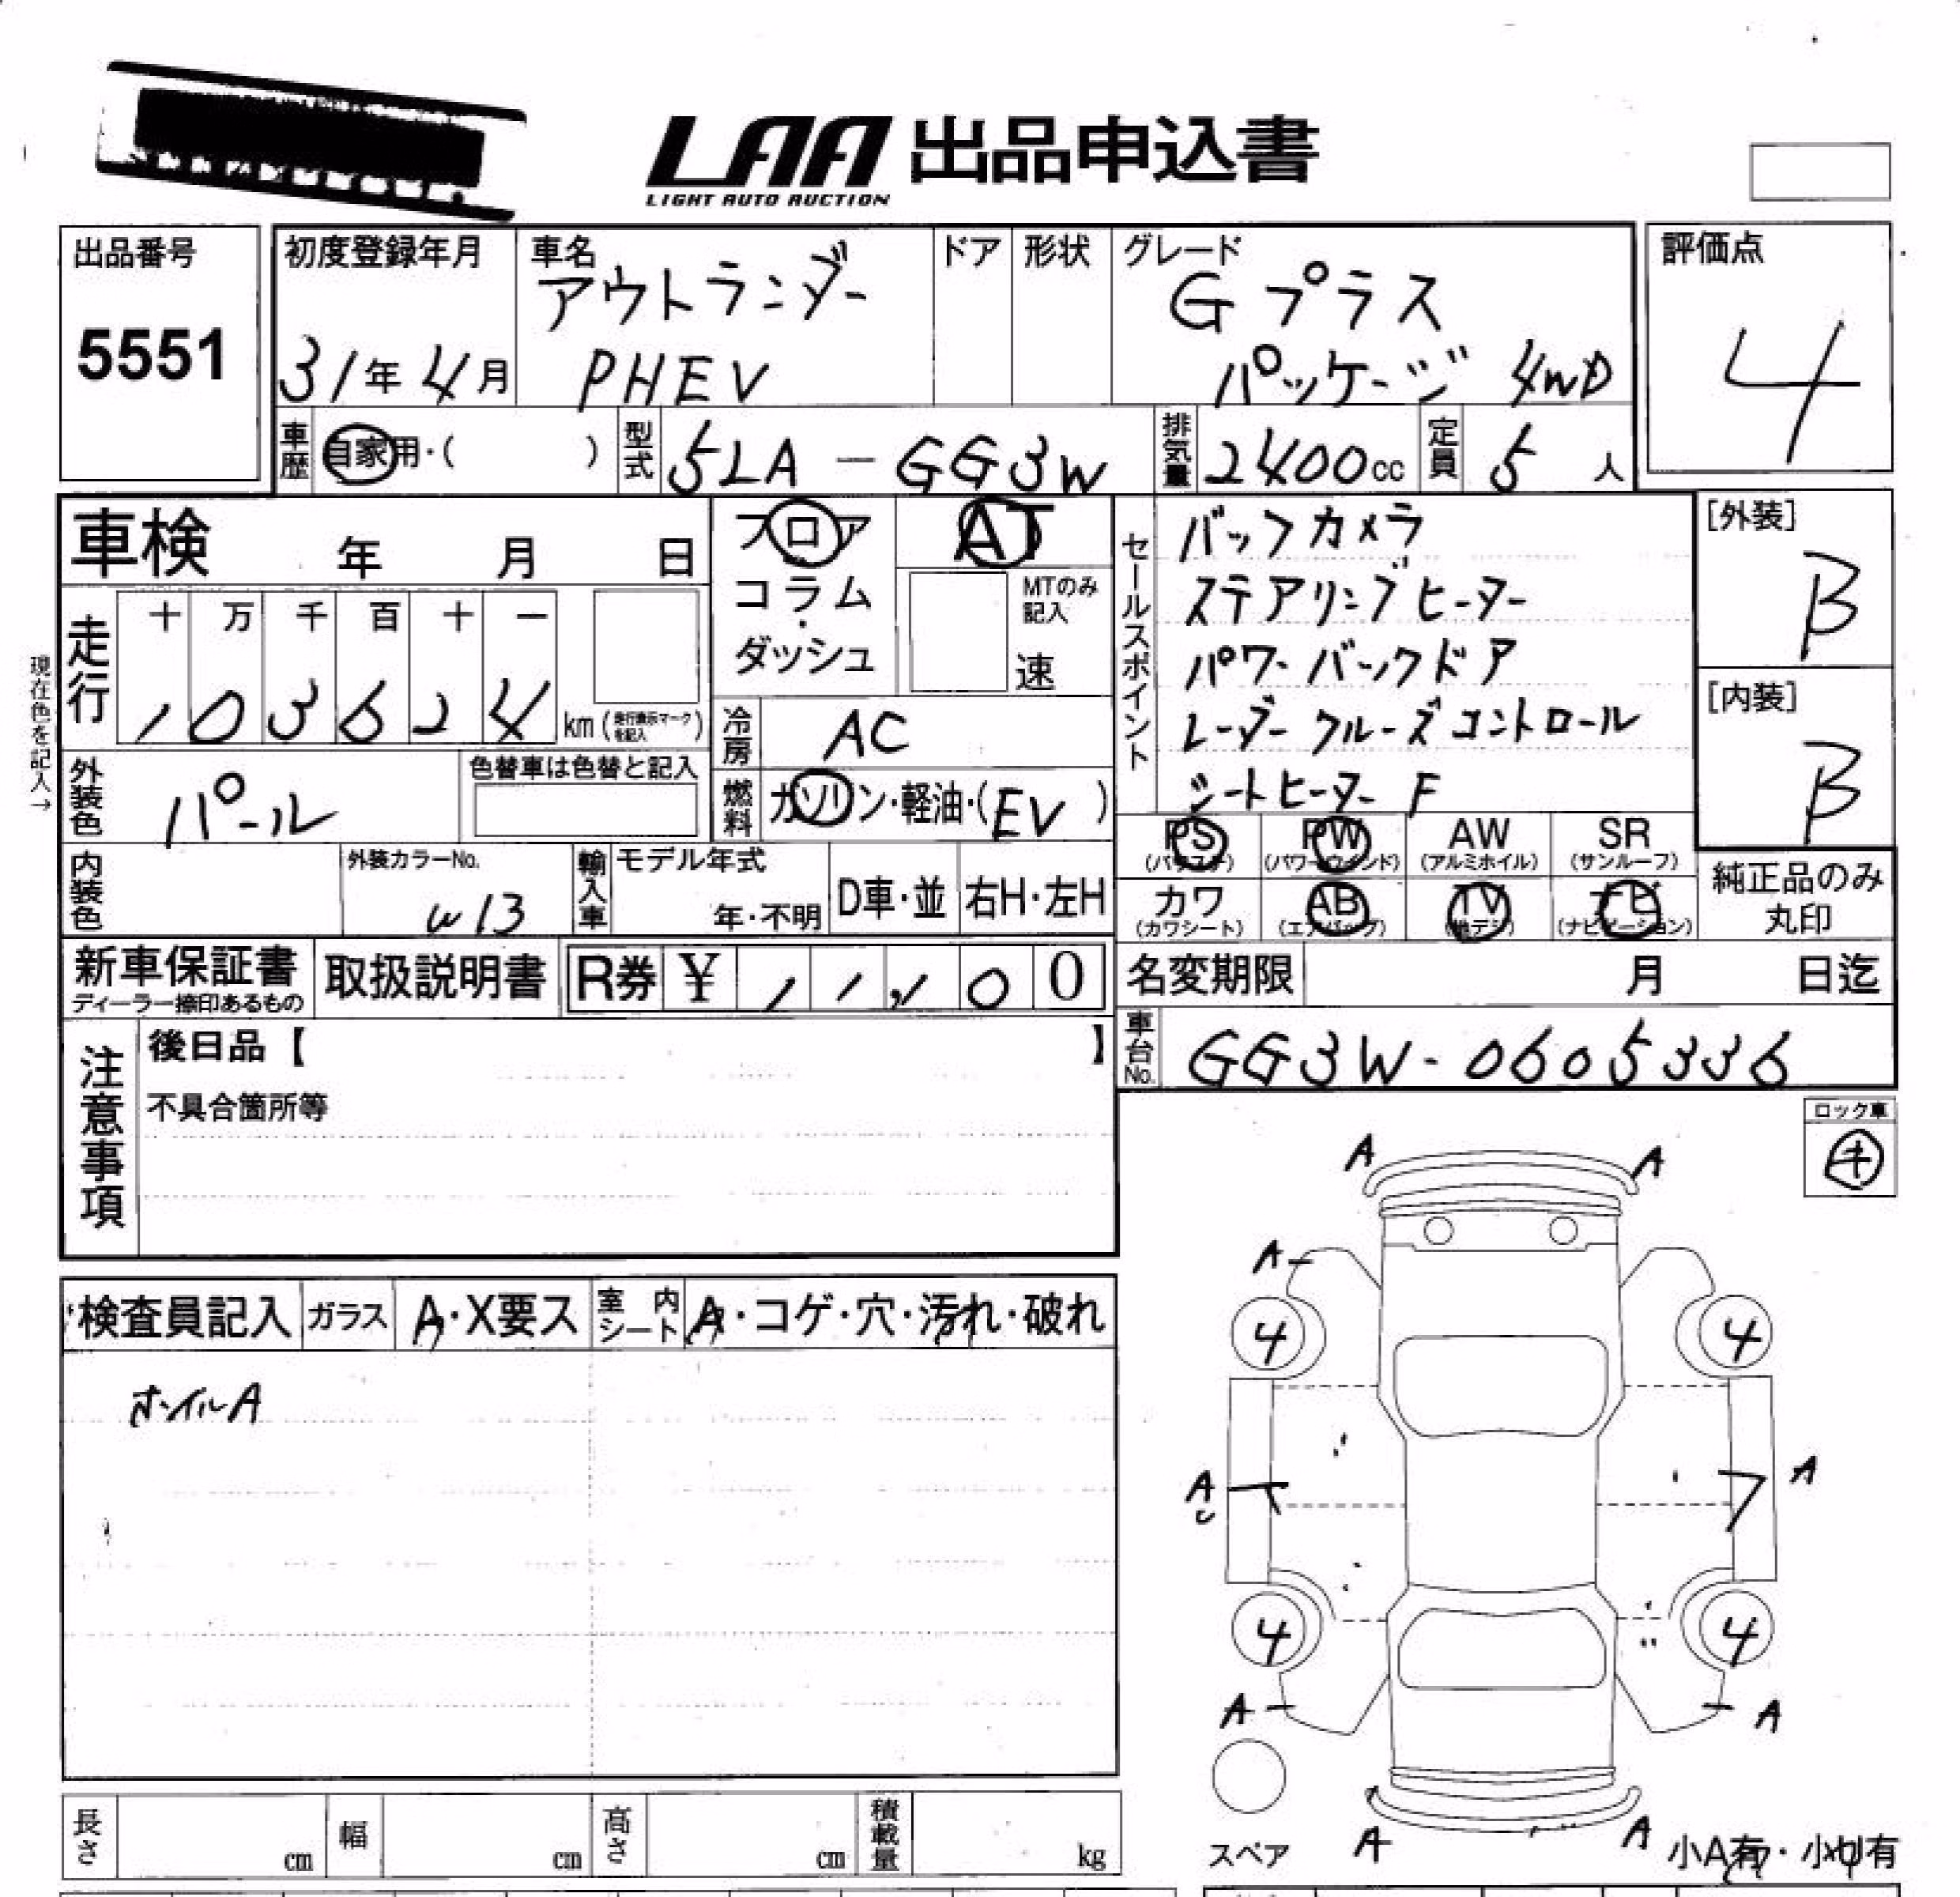 LAA 出品申込書
LIGHT AUTO AUCTION
出品番号
5551
初度登録年月
31年4月
車名
アウトランダー
PHEV
ドア
形状
グレード
Gプラス
パッケージ 4WD
評価点
4
車歴
自家用・( )
型式
5LA-GG3W
排気量
2400cc
定員
5人
車検 年 月 日
フロア
コラム
・
ダッシュ
AT
MTのみ
記入
速
セールスポイント
バックカメラ
ステアリングヒーター
パワーバックドア
レーダークルーズコントロール
シートヒーターF
[外装]
B
[内装]
B
現在色を記入→
走行
十 万 千 百 十 一
1 0 3 6 2 4 km (走行表示マークを記入)
冷房
AC
外装色
パール
色替車は色替と記入
燃料
ガソリン・軽油・(EV)
PS
(パワステ)
PW
(パワーウインド)
AW
(アルミホイル)
SR
(サンルーフ)
内装色
外装カラーNo.
W13
輸入車
モデル年式
年・不明
D車・並
右H・左H
カワ
(カワシート)
AB
(エアバッグ)
TV
(地デジ)
ナビ
(ナビゲーション)
純正品のみ
丸印
新車保証書
ディーラー捺印あるもの
取扱説明書
R券 ¥ 1 1,1 0 0
名変期限 月 日迄
車台No.
GG3W-0605336
注意事項
後日品【 】
不具合箇所等
ロック車
キ
検査員記入
ガラス
A・X要ス
室内シート
A・コゲ・穴・汚れ・破れ
ホイルA
A A
A
4 4
A A
4 4
A A
スペア
A A
小A有・小U有
長さ cm
幅 cm
高さ cm
積載量 kg